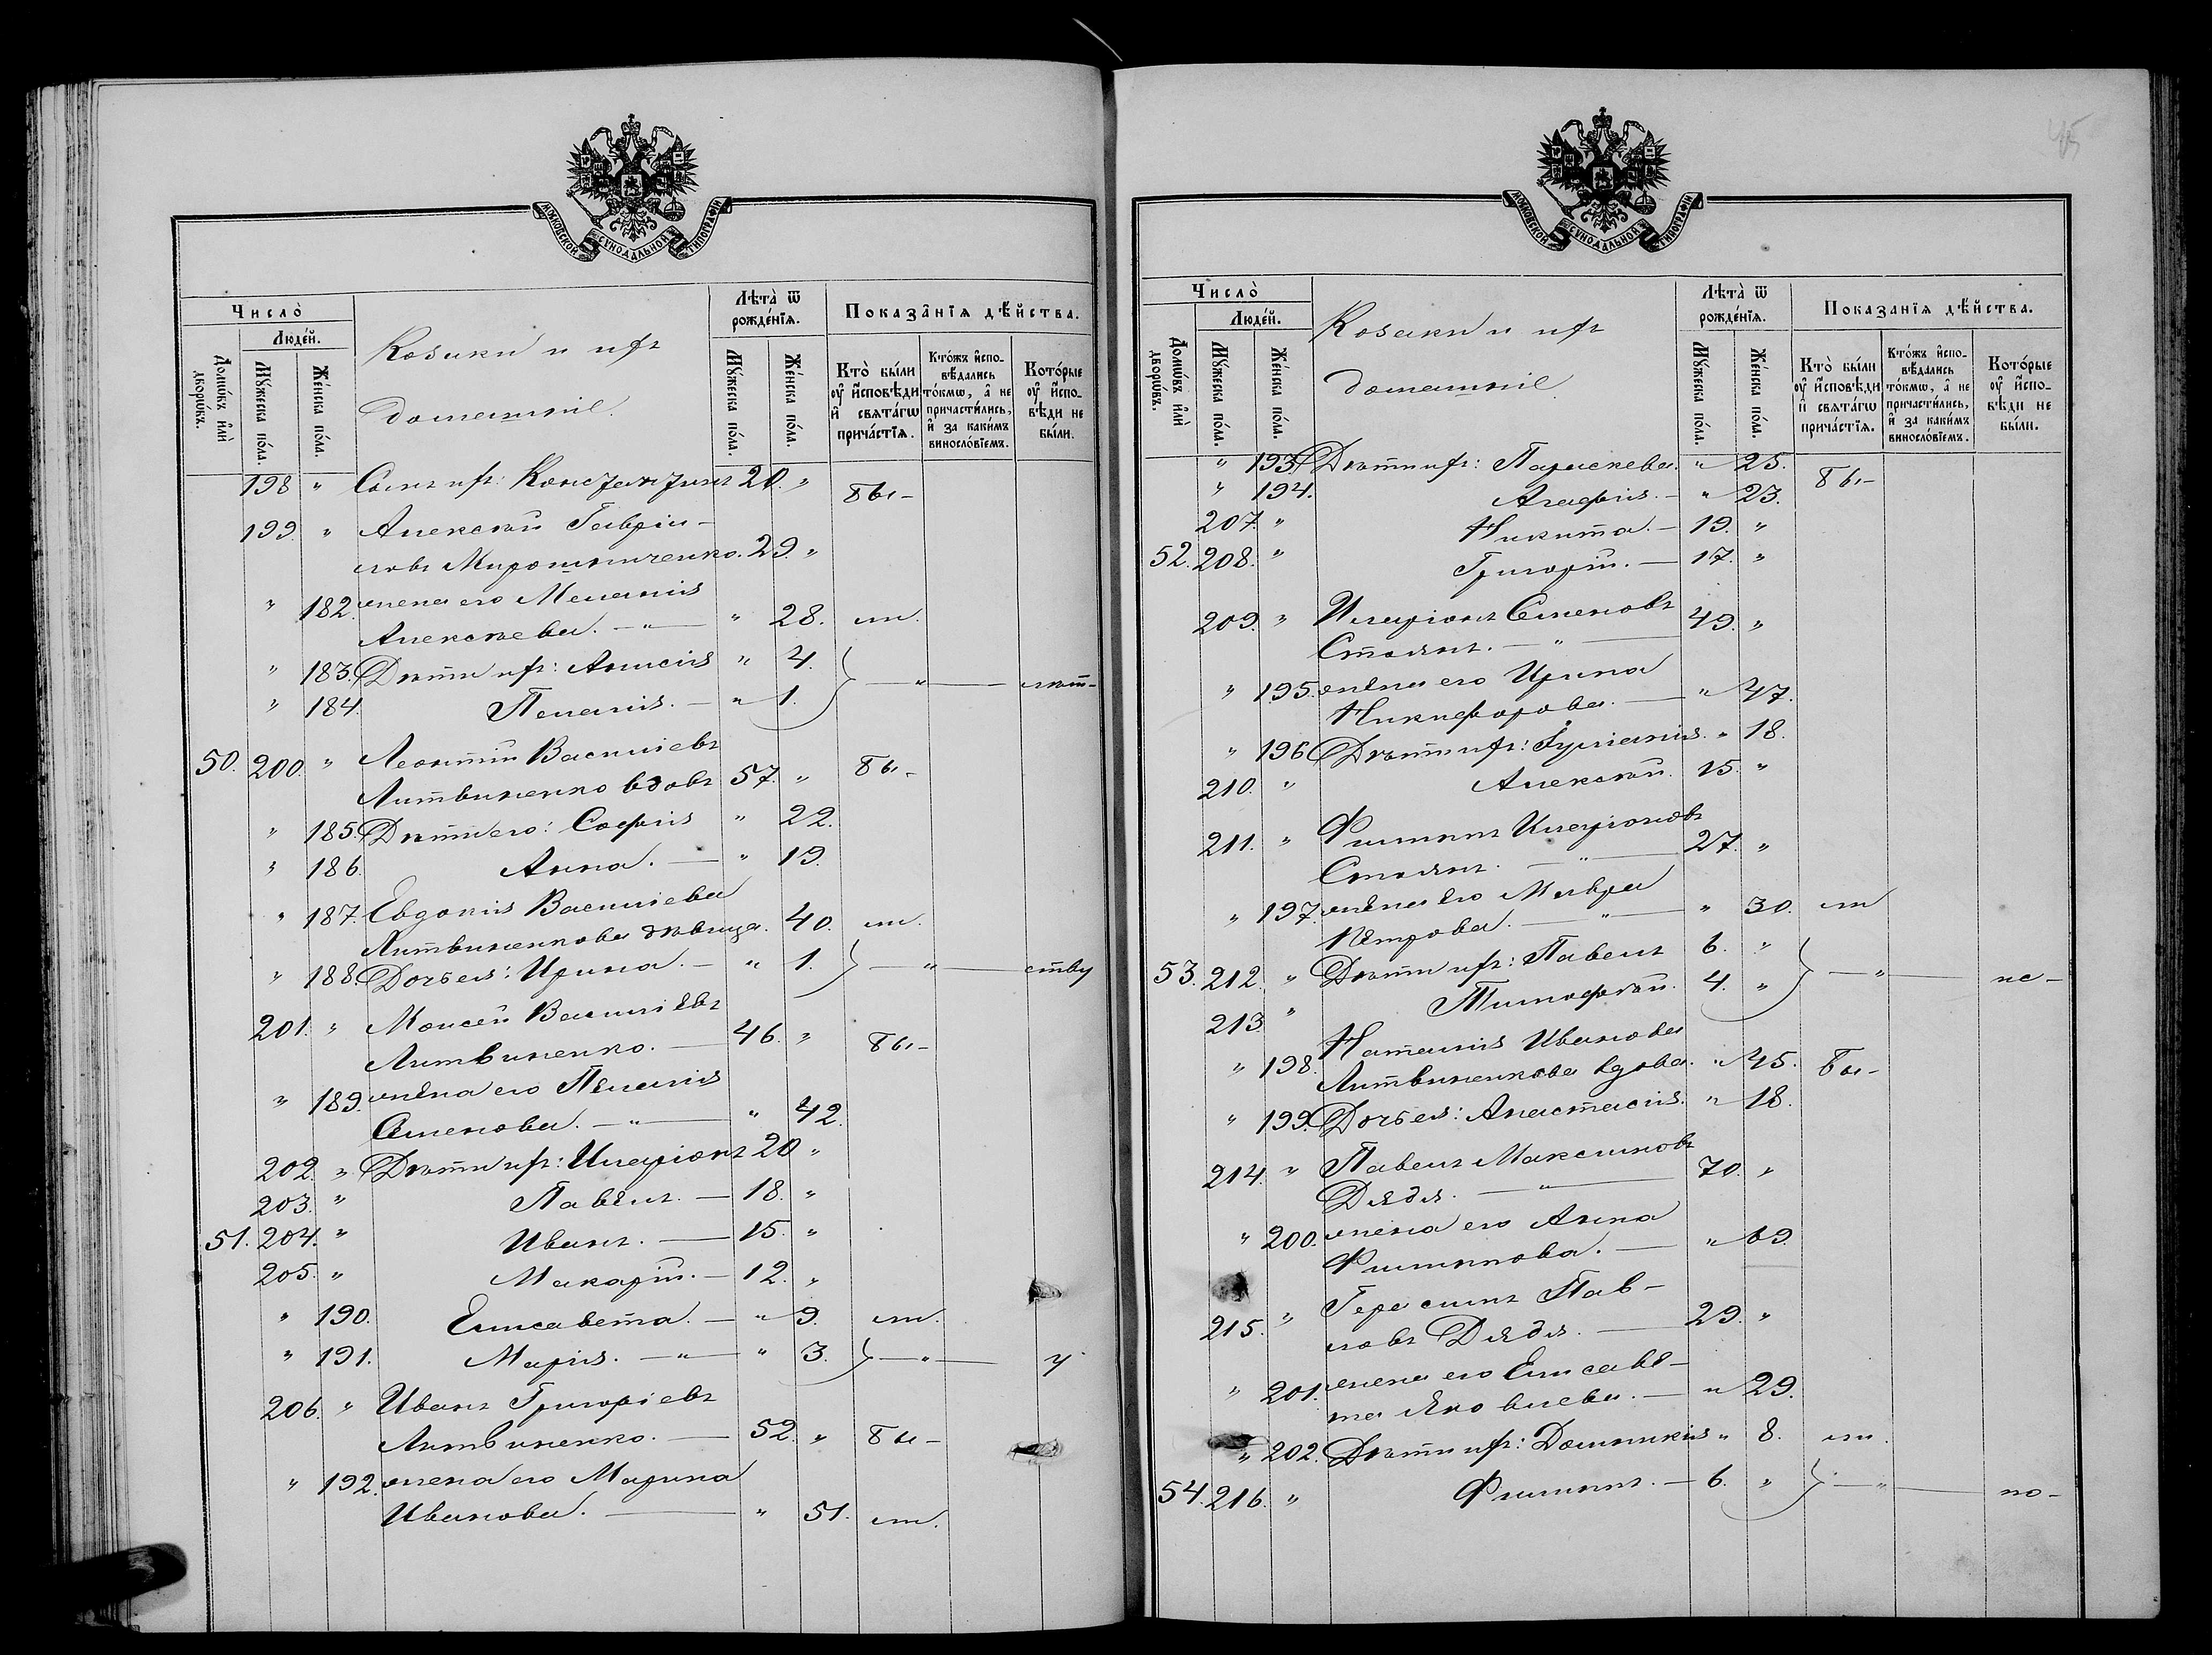 МОСКОВСКОЙ СУНОДАЛЬНОЙ ТИПОГРАФІИ
Число̀
Люде́й.
Домѡ́въ и҆лѝ дворѡ́въ.
Мꙋ́жеска по́ла.
Же́нска по́ла.
Козаки и ихъ
домашніе.
Лѣта̀ ѿ рожде́нїѧ.
Мꙋ́жеска по́ла.
Же́нска по́ла.
Показа̂нїѧ дѣ́йства.
Кто̀ бы́ли оу҆ и҆сповѣ́ди и҆ свѧта́гѡ прича́стїѧ.
Кто́жъ и҆спо-вѣ́дались то́кмѡ, а҆ не причасти́лись, и҆ за каки́мъ винослові́емъ.
Кото́рые оу҆ и҆спо-вѣ́ди не бы́ли.
198 " Сынъ ихъ: Константинъ 20. " бы-
199. " Алексѣй Гаврі-
ловъ Мирошниченко. 29. "
" 182. жена его Меланія
Алексѣева. — " — " 28. ли.
" 183. Дѣти ихъ: Анисія " 4.
" 184. Пелагія. — " 1. } — " — лѣт-
50. 200. " Леонтій Васильевъ
Литвиненко вдовъ 57. " бы-
" 185. Дѣти его: Софія " 22.
" 186. Анна. — " 19.
" 187. Евдокія Васильева
Литвиненкова дѣвица. 40. ли.
" 188. Дочь ея: Ирина. — " 1. } — " — ству
201. " Моисей Васильевъ
Литвиненко. — 46. " бы-
" 189. жена его Пелагія
Семенова. — " — " 42.
202. " Дѣти ихъ: Иларіонъ 20 "
203. " Павелъ. — 18. "
51. 204. " Иванъ. — 15. "
205. " Макарій. — 12. "
" 190. Елисавета. — " 9. ли.
" 191. Марія. — " — " 3. } — " — у
206. " Иванъ Григоріевъ
Литвиненко. — 52. " бы-
" 192. жена его Марина
Иванова. — " 51. ли.
45
МОСКОВСКОЙ СУНОДАЛЬНОЙ ТИПОГРАФІИ
Число̀
Люде́й.
Домѡ́въ и҆лѝ дворѡ́въ.
Мꙋ́жеска по́ла.
Же́нска по́ла.
Козаки и ихъ
домашніе.
Лѣта̀ ѿ рожде́нїѧ.
Мꙋ́жеска по́ла.
Же́нска по́ла.
Показанїѧ дѣ́йства.
Кто̀ бы́ли оу҆ и҆сповѣ́ди и҆ свѧта́гѡ прича́стїѧ.
Кто́жъ и҆спо-вѣ́дались то́кмѡ, а҆ не причасти́лись, и҆ за каки́мъ винослові́емъ.
Кото́рые оу҆ и҆спо-вѣ́ди не бы́ли.
" 193. Дѣти ихъ: Параскева. " 25. бы-
" 194. Агафія. — " 23.
207. " Никита. — 19. "
52. 208. " Григорій. — 17. "
209. " Иларіонъ Семеновъ
Стоянъ. — " — 49. "
" 195. жена его Ирина
Никифорова. — " 47.
" 196 Дѣти ихъ: Іуліанія. " 18.
210. " Алексѣй. 15. "
211. " Филиппъ Иларіоновъ
Стоянъ. — " — 27. "
" 197. жена его Мавра
Петрова. — " — " 30. ли
53. 212. " Дѣти ихъ: Павелъ 6. "
213. " Тимофей. 4. " } — " — не-
" 198. Наталія Иванова
Литвиненкова вдова. " 45. бы-
" 199. Дочь ея: Анастасія. " 18.
214. " Павелъ Максимовъ
Дядя. — " — 70. "
" 200. жена его Анна
Филиппова. — " 69.
215. " Герасимъ Пав-
ловъ Дядя. — 29. "
" 201. жена его Елисаве-
та Яковлева. — " 29.
" 202. Дѣти ихъ: Домникія " 8. ли.
54. 216. " Филиппъ. — 6. " } — " — по-